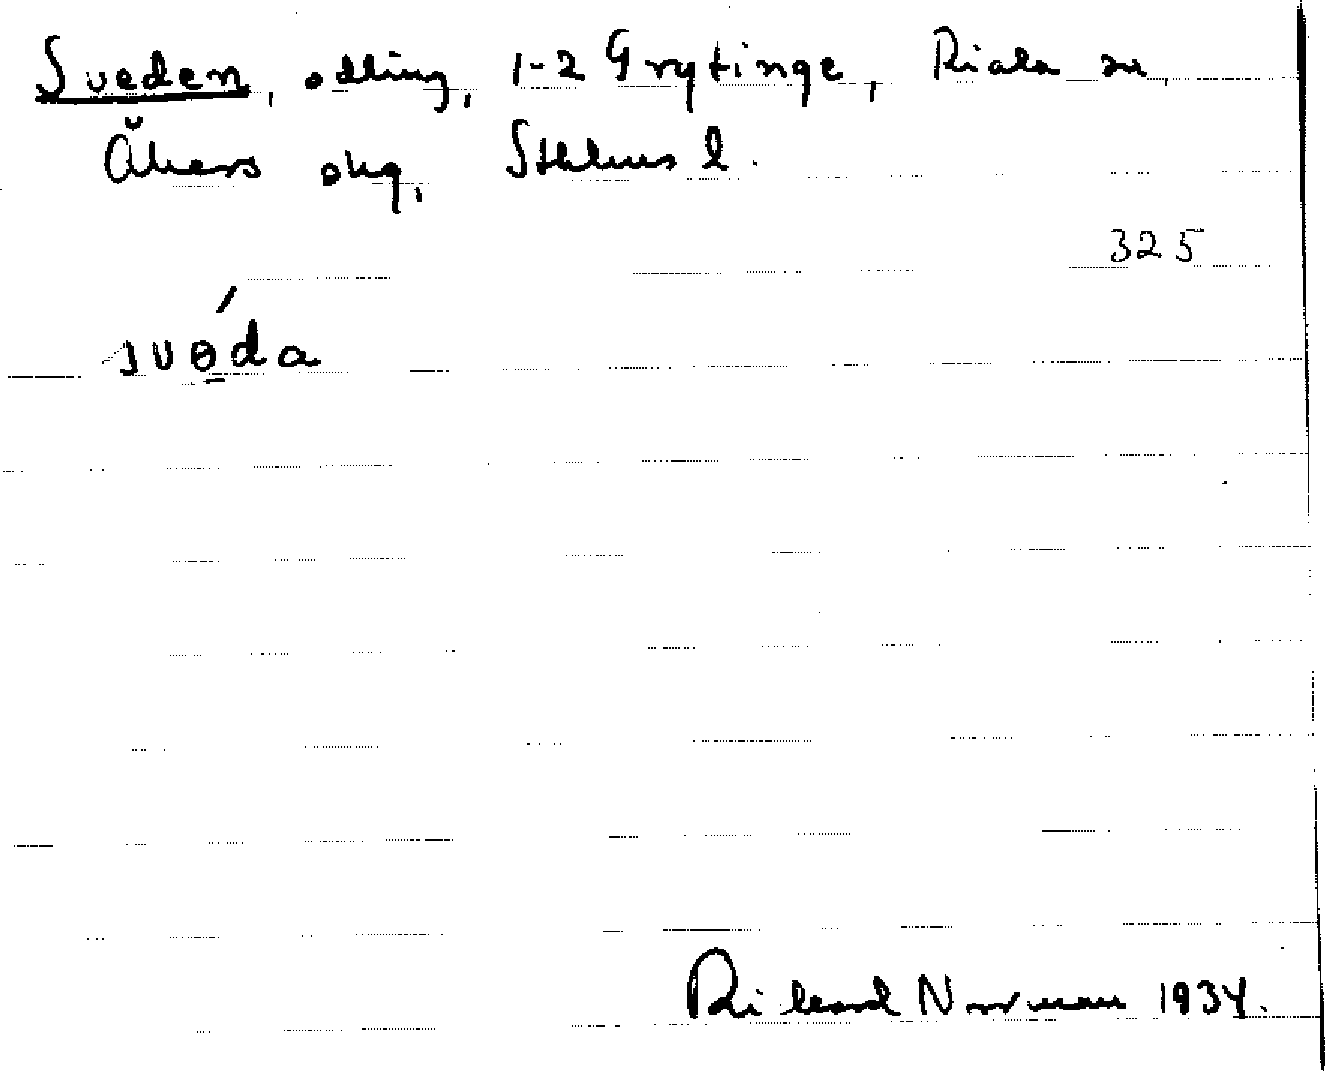 Sveden, odling, 1-2 Grytinge, Riala sn,
Åkers skg, Sthlms l.
325
svǝ̱́da
Rikard Norrman 1934.